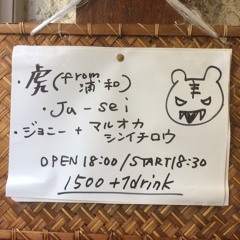 ・虎(from浦和)
・Ja-sei
・ジョニー + マルオカ
シンイチロウ
OPEN 18:00/START 18:30
1500+1drink